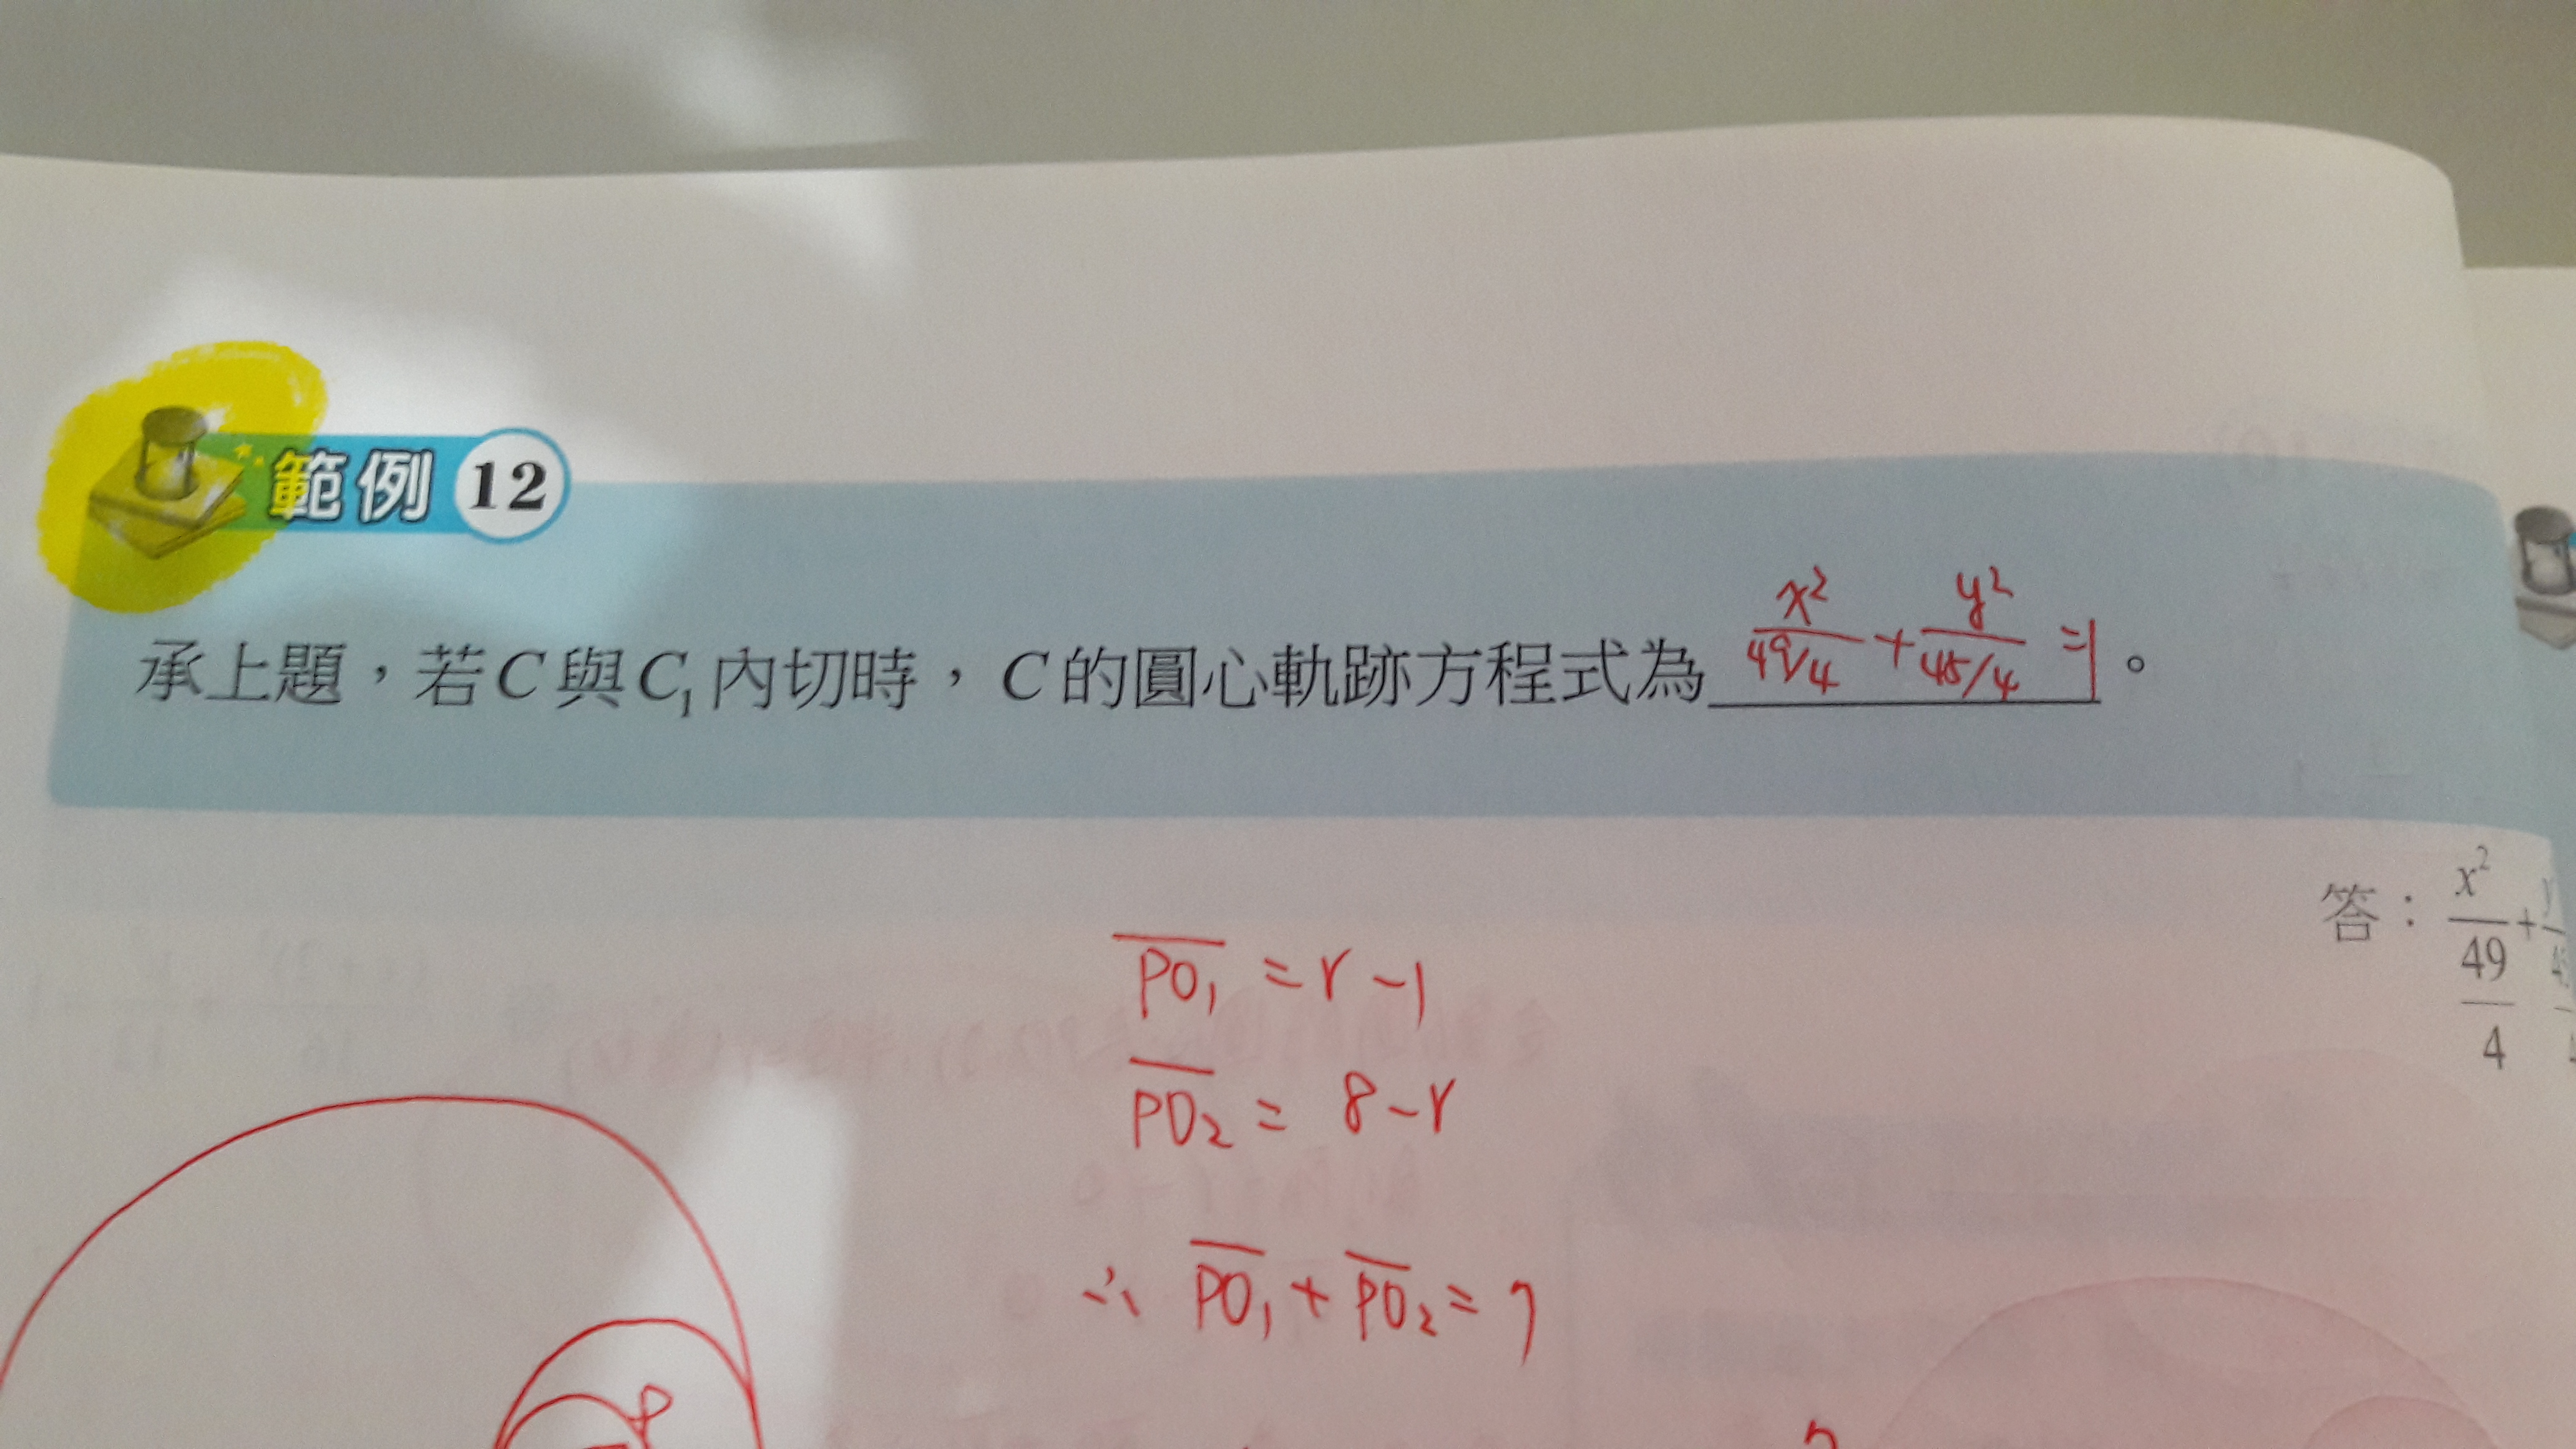 範例 12
承上題，若C與C₁內切時，C的圓心軌跡方程式為 x²/(49/4) + y²/(45/4) = 1 。
答： x²/(49/4) +
PO₁ = r - 1
PO₂ = 8 - r
∴ PO₁ + PO₂ = 7
P